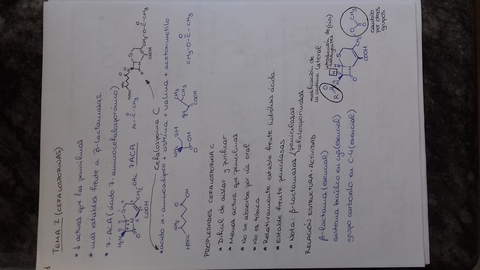 TEMA 2 (CEFALOSPORINAS)
• ↓ activas que las penicilinas
• más estables frente a β-lactamasas
• 7-ACA (ácido 7-aminocefalosporánico)
COOH
7ACA
COOH
Cefalosporina C
• ácido α-aminoadípico + cisteína + valina + acetoximetilo
HOOC
COOH
PROPIEDADES CEFALOSPORINA C
• Difícil de aislar y purificar
• Menos activa que penicilinas
• No se absorbe por vía oral
• No es tóxica
• Relativamente estable frente hidrólisis ácida
• Estable frente penicilasas
• Nota: β-lactamasas / penicilasas / cefalosporinasas
RELACIÓN ESTRUCTURA-ACTIVIDAD
β-lactama (esencial)
sistema bicíclico
grupo carboxilo en C-4 (esencial)
modificación de la cadena lateral
COOH
cambio por otros grupos